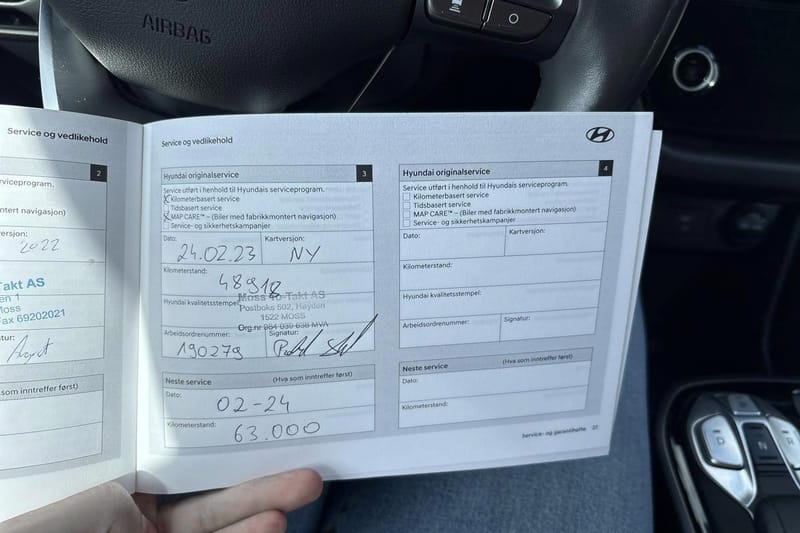 AIRBAG
Service og vedlikehold
2
viceprogram.
ntert navigasjon)
ersjon:
2022
Takt AS
en 1
Moss
Fax 69202021
tur:
som inntreffer først)
Service og vedlikehold
Hyundai originalservice 3
Service utført i henhold til Hyundais serviceprogram.
Kilometerbasert service
Tidsbasert service
MAP CARE™ – (Biler med fabrikkmontert navigasjon)
Service- og sikkerhetskampanjer
Dato: Kartversjon:
24.02.23 NY
Kilometerstand:
48918
Hyundai kvalitetsstempel:
Moss To-Takt AS
Postboks 502, Høyden
1522 MOSS
Org.nr MVA
Arbeidsordrenummer: Signatur:
190279
Neste service (Hva som inntreffer først)
Dato:
02-24
Kilometerstand:
63.000
Hyundai originalservice 4
Service utført i henhold til Hyundais serviceprogram.
Kilometerbasert service
Tidsbasert service
MAP CARE™ – (Biler med fabrikkmontert navigasjon)
Service- og sikkerhetskampanjer
Dato: Kartversjon:
Kilometerstand:
Hyundai kvalitetsstempel:
Arbeidsordrenummer: Signatur:
Neste service (Hva som inntreffer først)
Dato:
Kilometerstand:
Service- og garantihefte
D
N
R